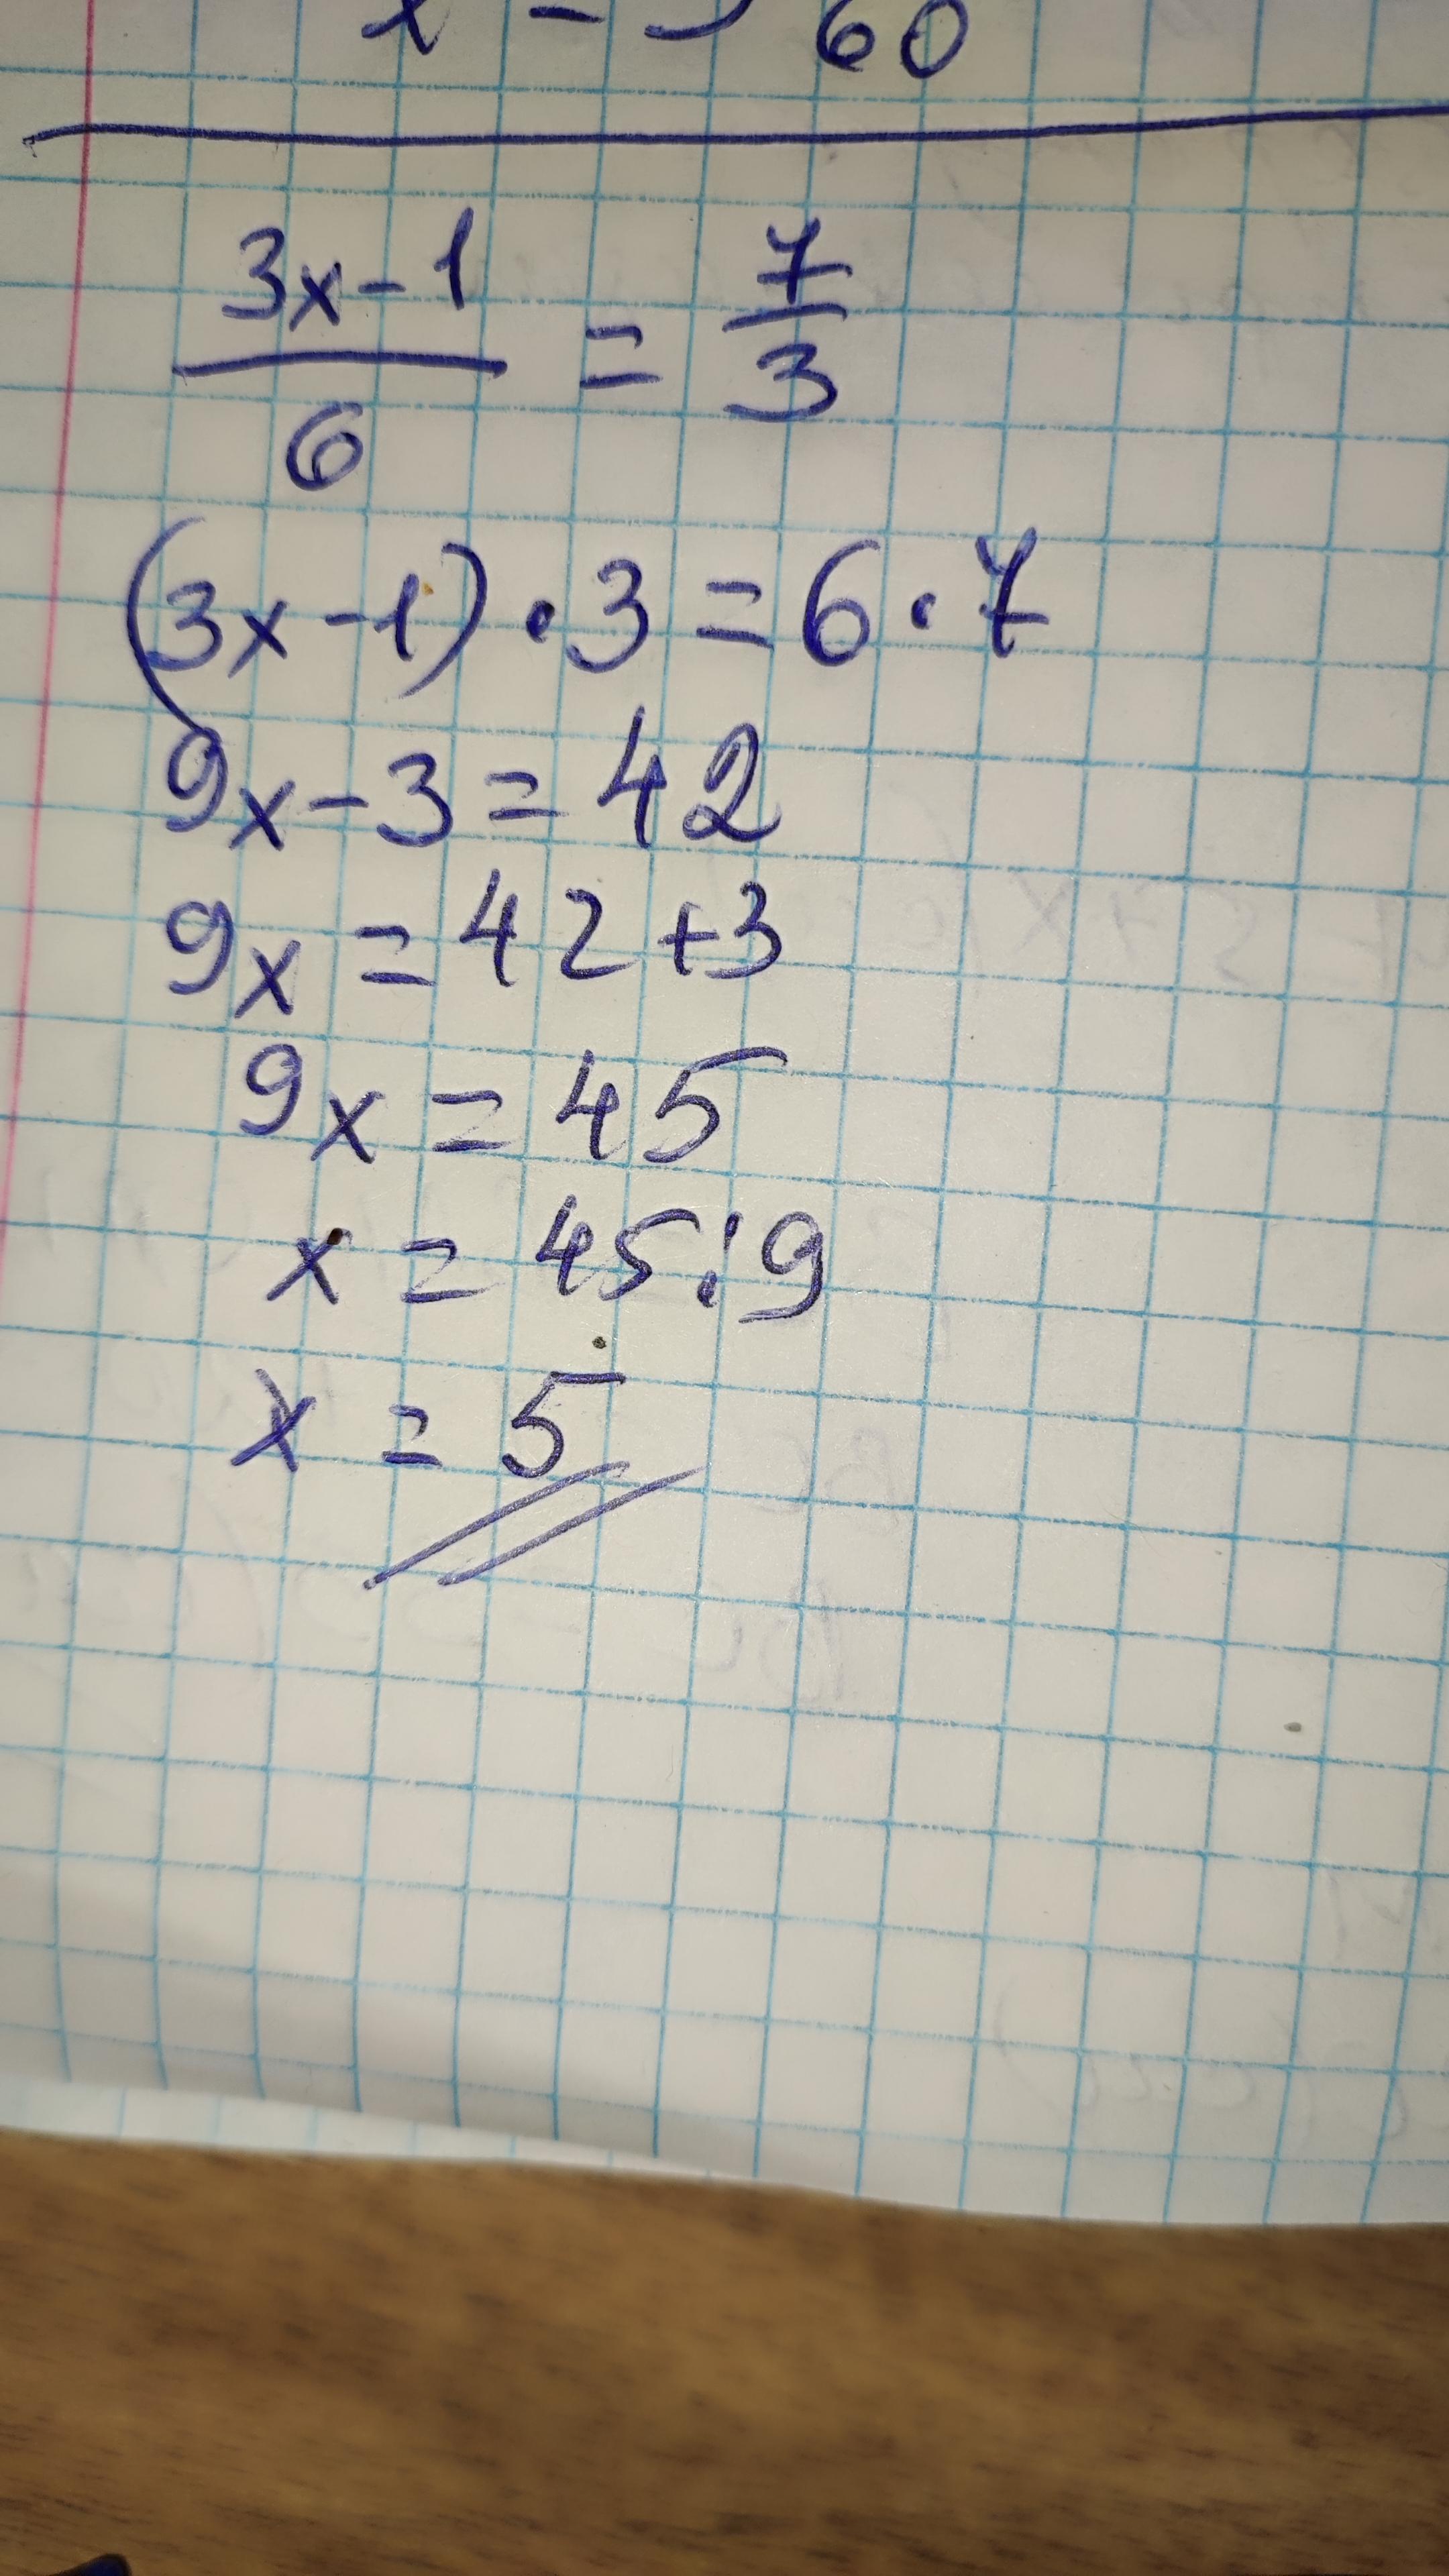 x = 60
3x-1/6 = 7/3
(3x-1)·3=6·7
9x-3=42
9x=42+3
9x=45
x=45:9
x=5